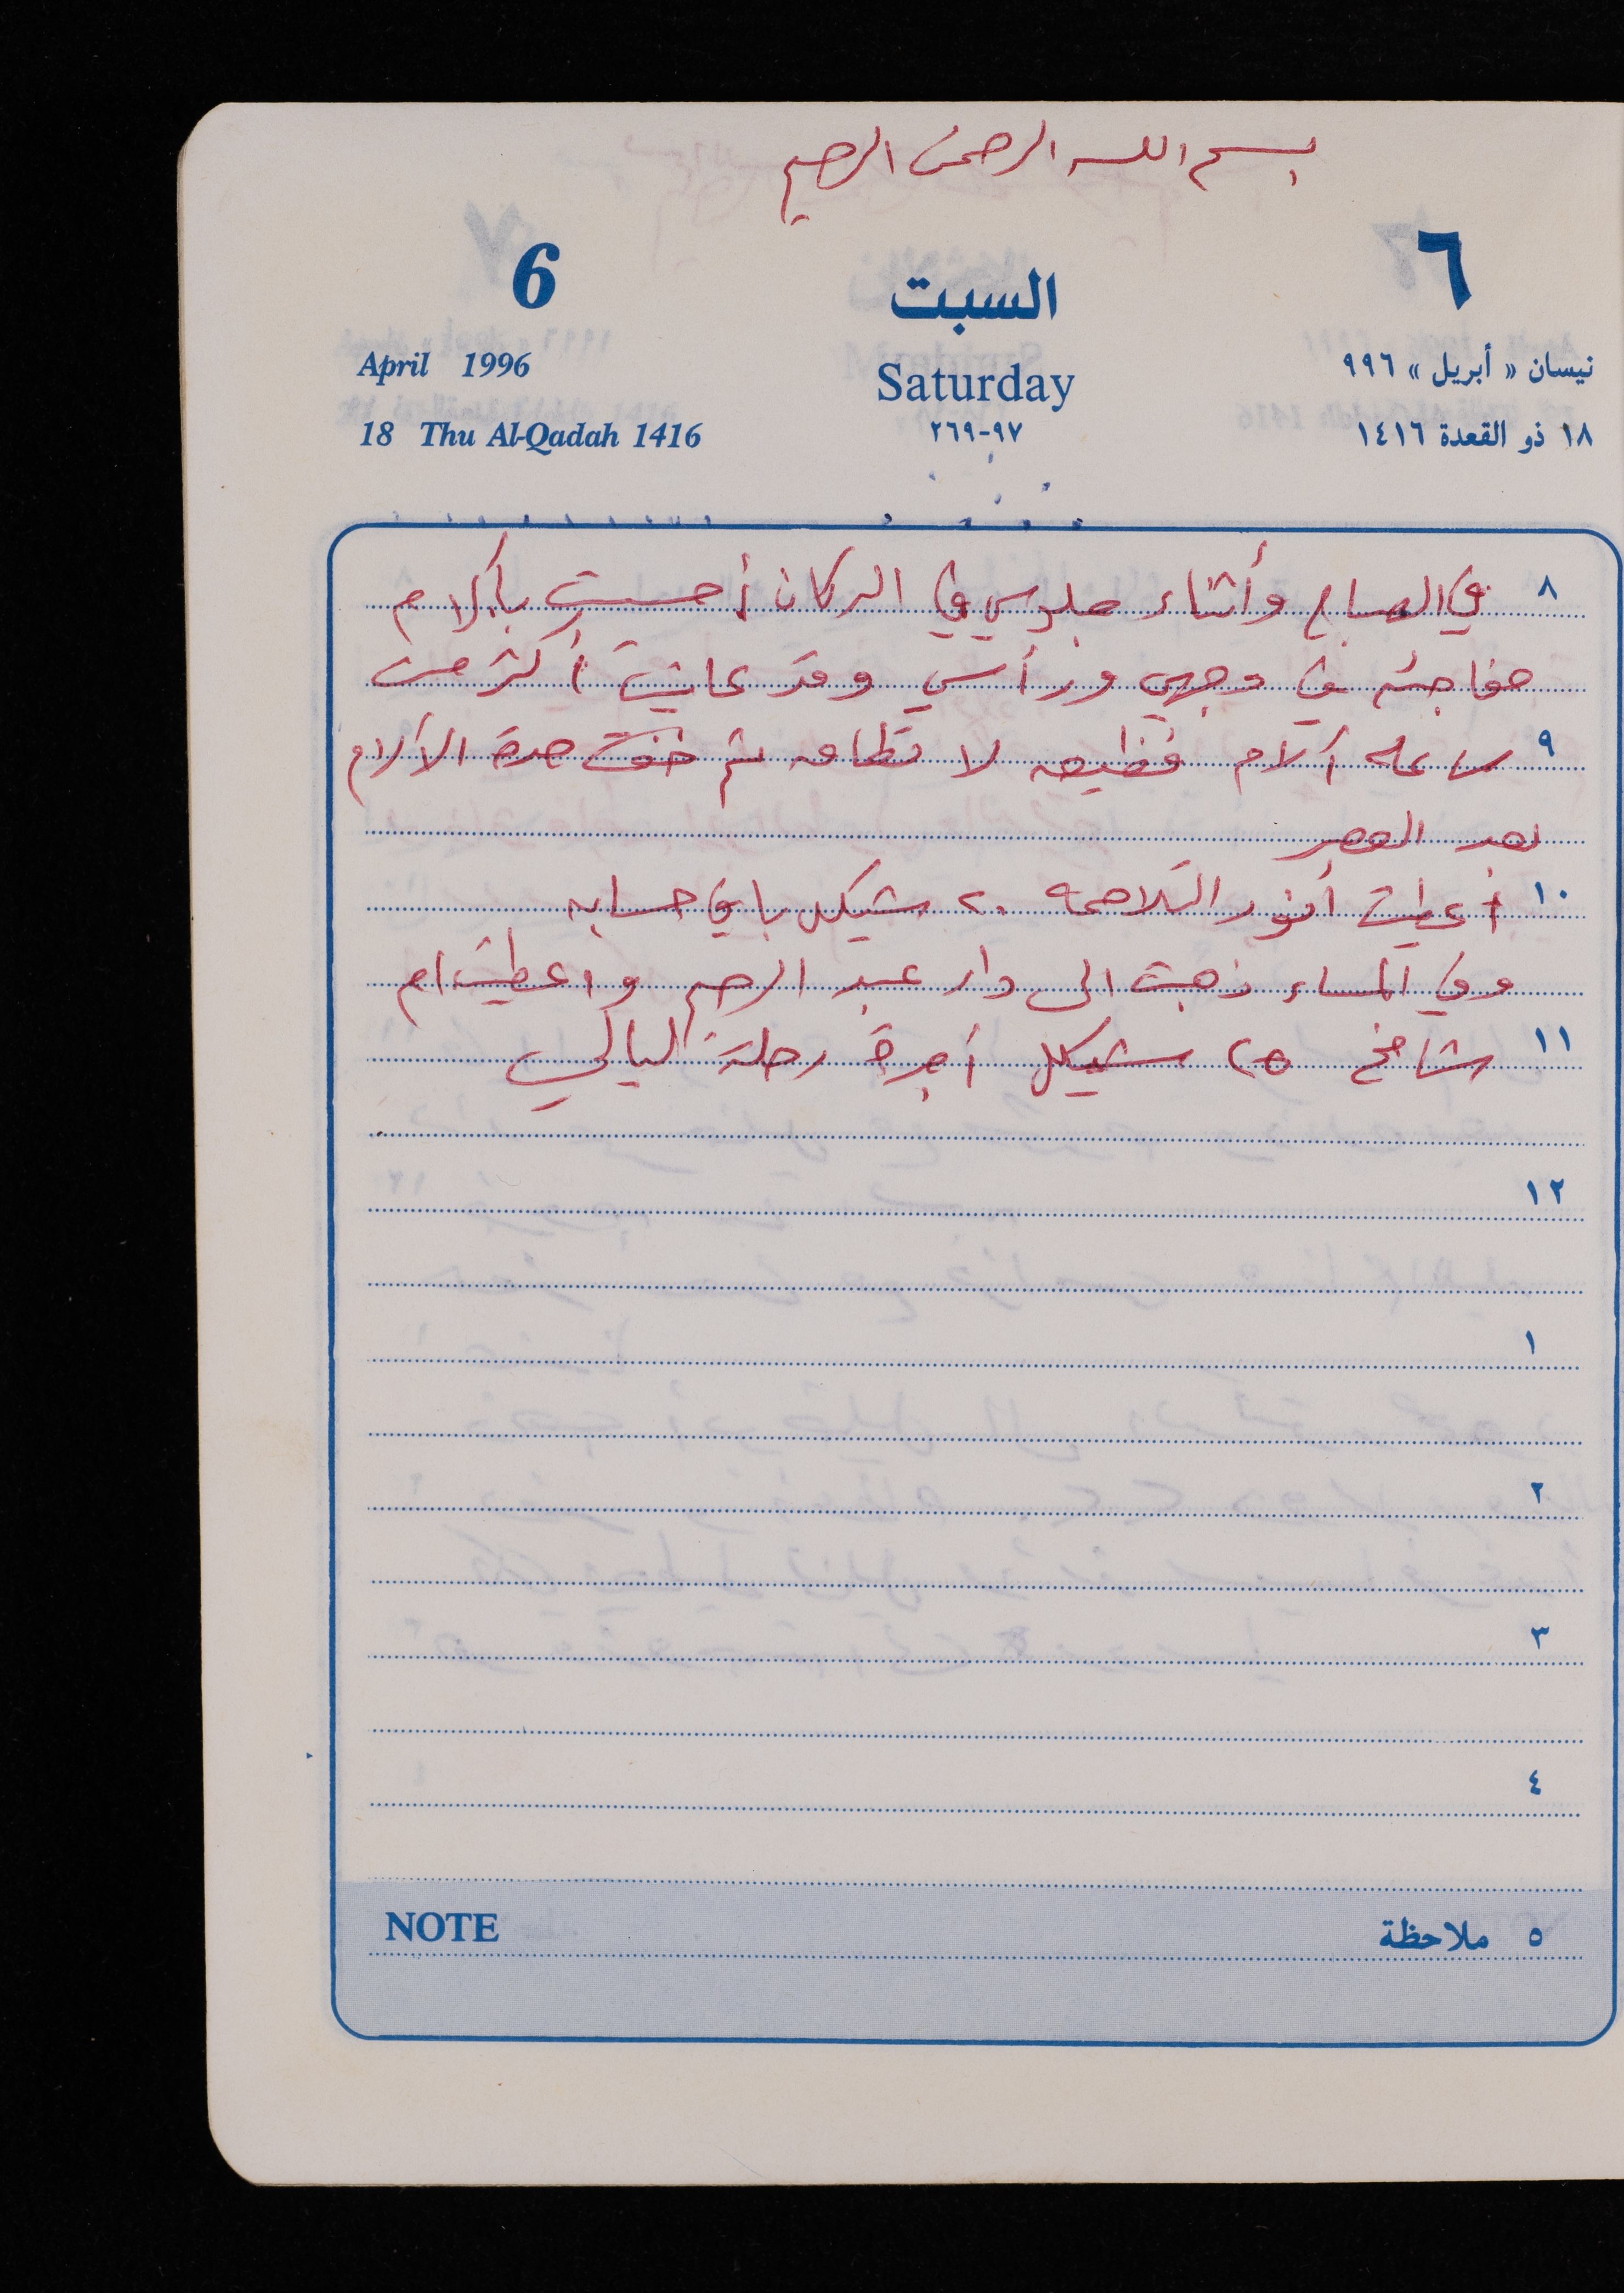 بسم الله الرحمن الرحيم
6 السبت ٦
April 1996 Saturday نيسان « أبريل » ٩٩٦
18 Thu Al-Qadah 1416 ٩٧-٢٦٩ ١٨ ذو القعدة ١٤١٦
٨ في الصباح وأثناء جلوسي في الدكان أحسست بآلام
مفاجئه في وجهي ورأسي وقد عانيت أكثر من
٩ ساعه آلام فظيعه لا تطاق ثم خفت حدة الآلام
بعد العصر
١٠ أعطيت أنور التلاحمه ٢٠ شيكل باقي حسابه
وفي المساء ذهبت الى دار عبد الرحيم واعطيت ام
١١ شامخ ٢٥ شيكل أجرة رحلة ليالي
١٢
١
٢
٣
٤
NOTE ٥ ملاحظة